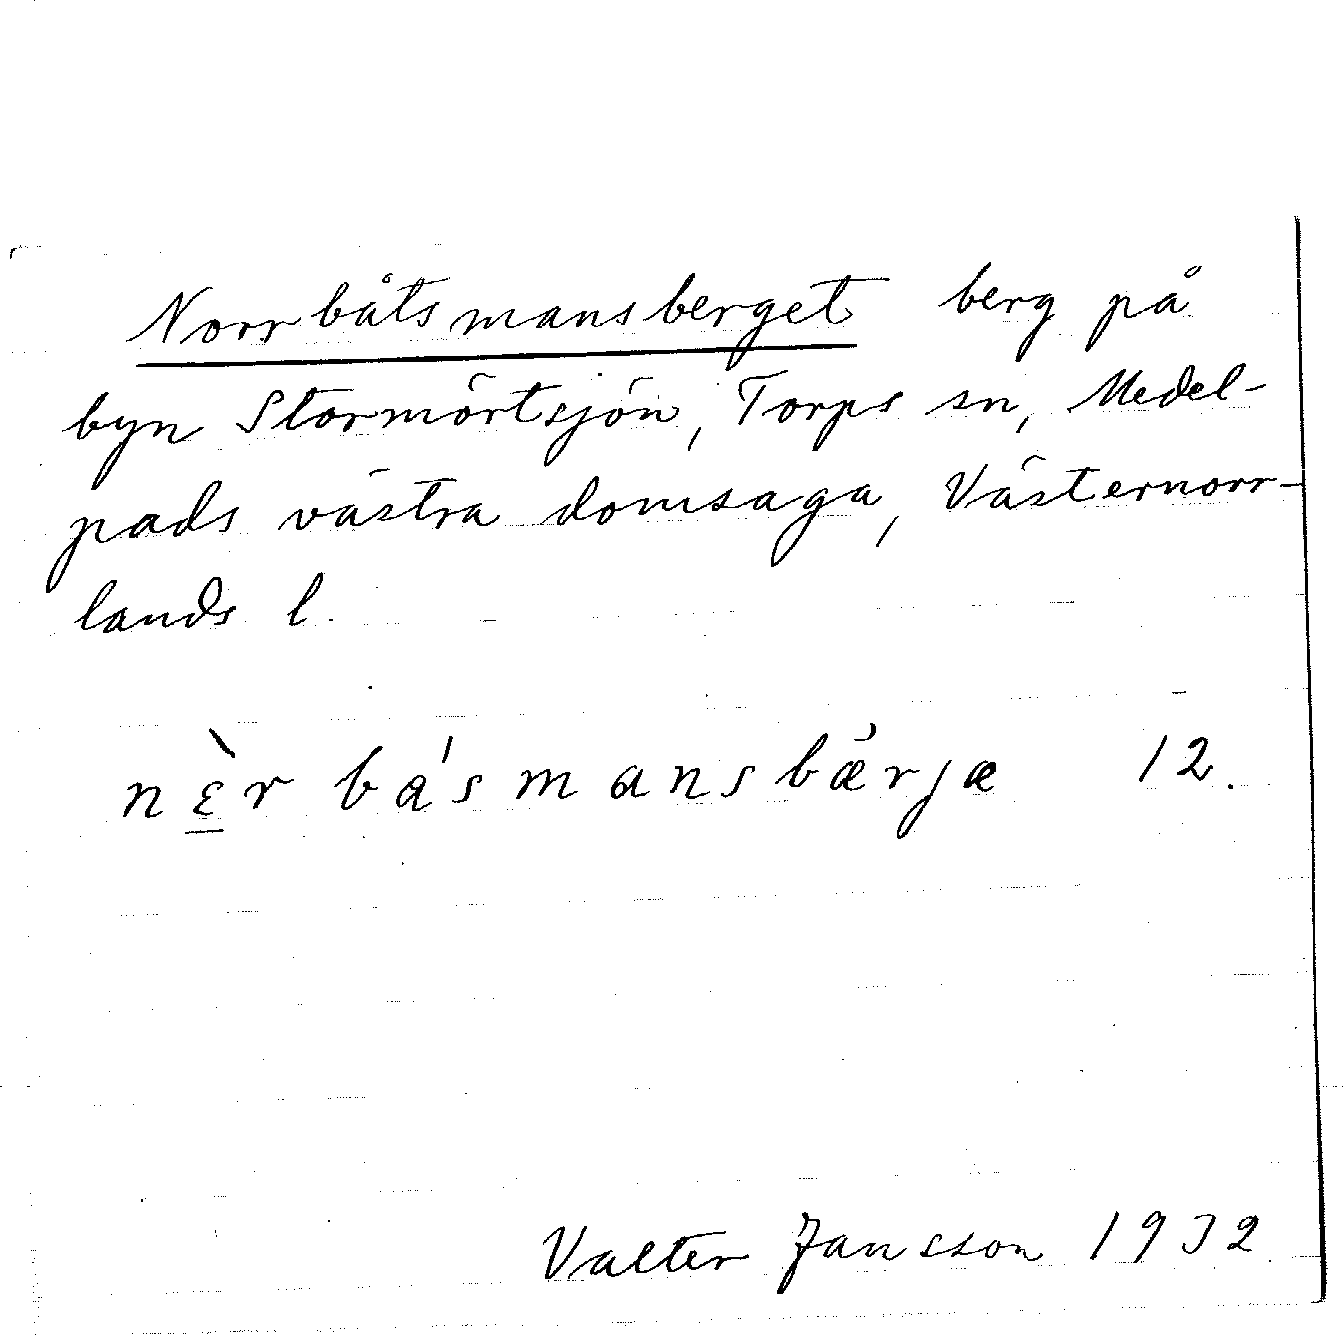 Norrbåtsmansberget berg på
byn Stormörtsjön, Torps sn, Medel-
pads västra domsaga, Västernorr-
lands l.
nɛ̀r bɑ́smansbǽrjæ 12.
Valter Jansson 1932